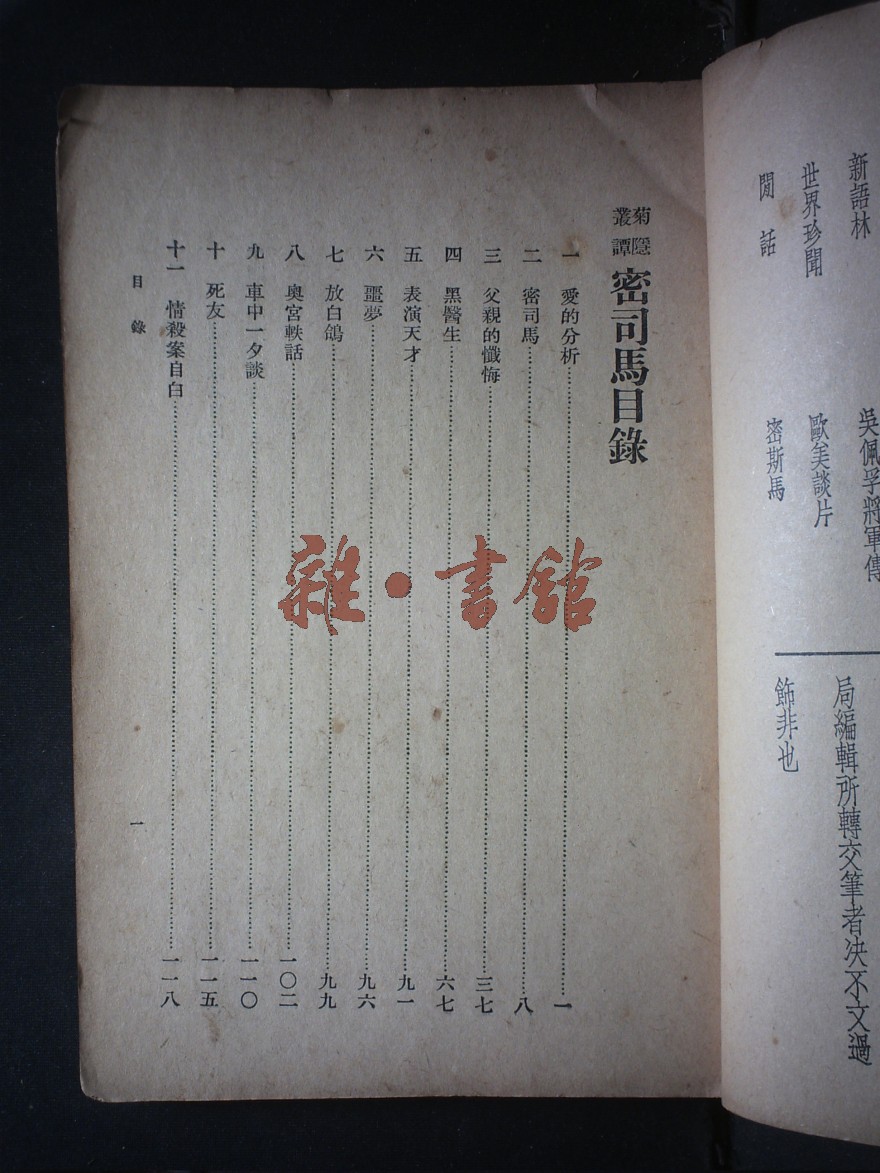 新語林
吳佩孚將軍傳
世界珍聞
歐美談片
閒話
密斯馬
局編輯所轉交筆者決不文過
飾非也
菊隱叢譚 密司馬目錄
一 愛的分析……一
二 密司馬……八
三 父親的懺悔……三七
四 黑醫生……六七
五 表演天才……九一
六 噩夢……九六
七 放白鴿……九九
八 奧宮軼話……一〇二
九 車中一夕談……一一〇
十 死友……一一五
十一 情殺案自白……一一八
目錄
一
雜·書館